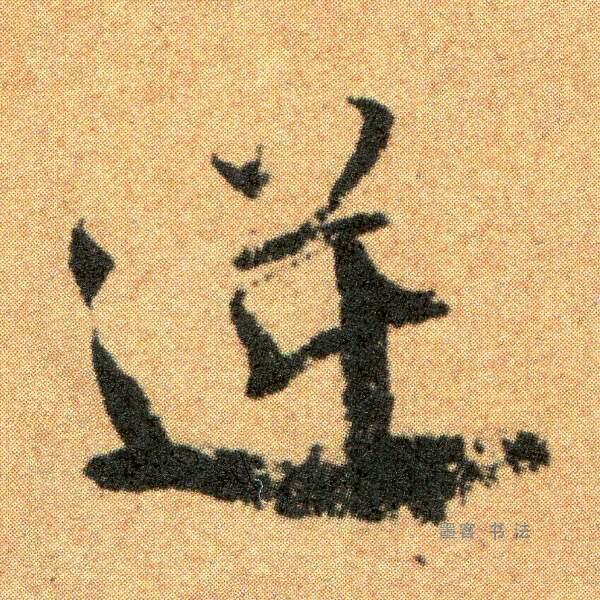 逆
墨客 书法